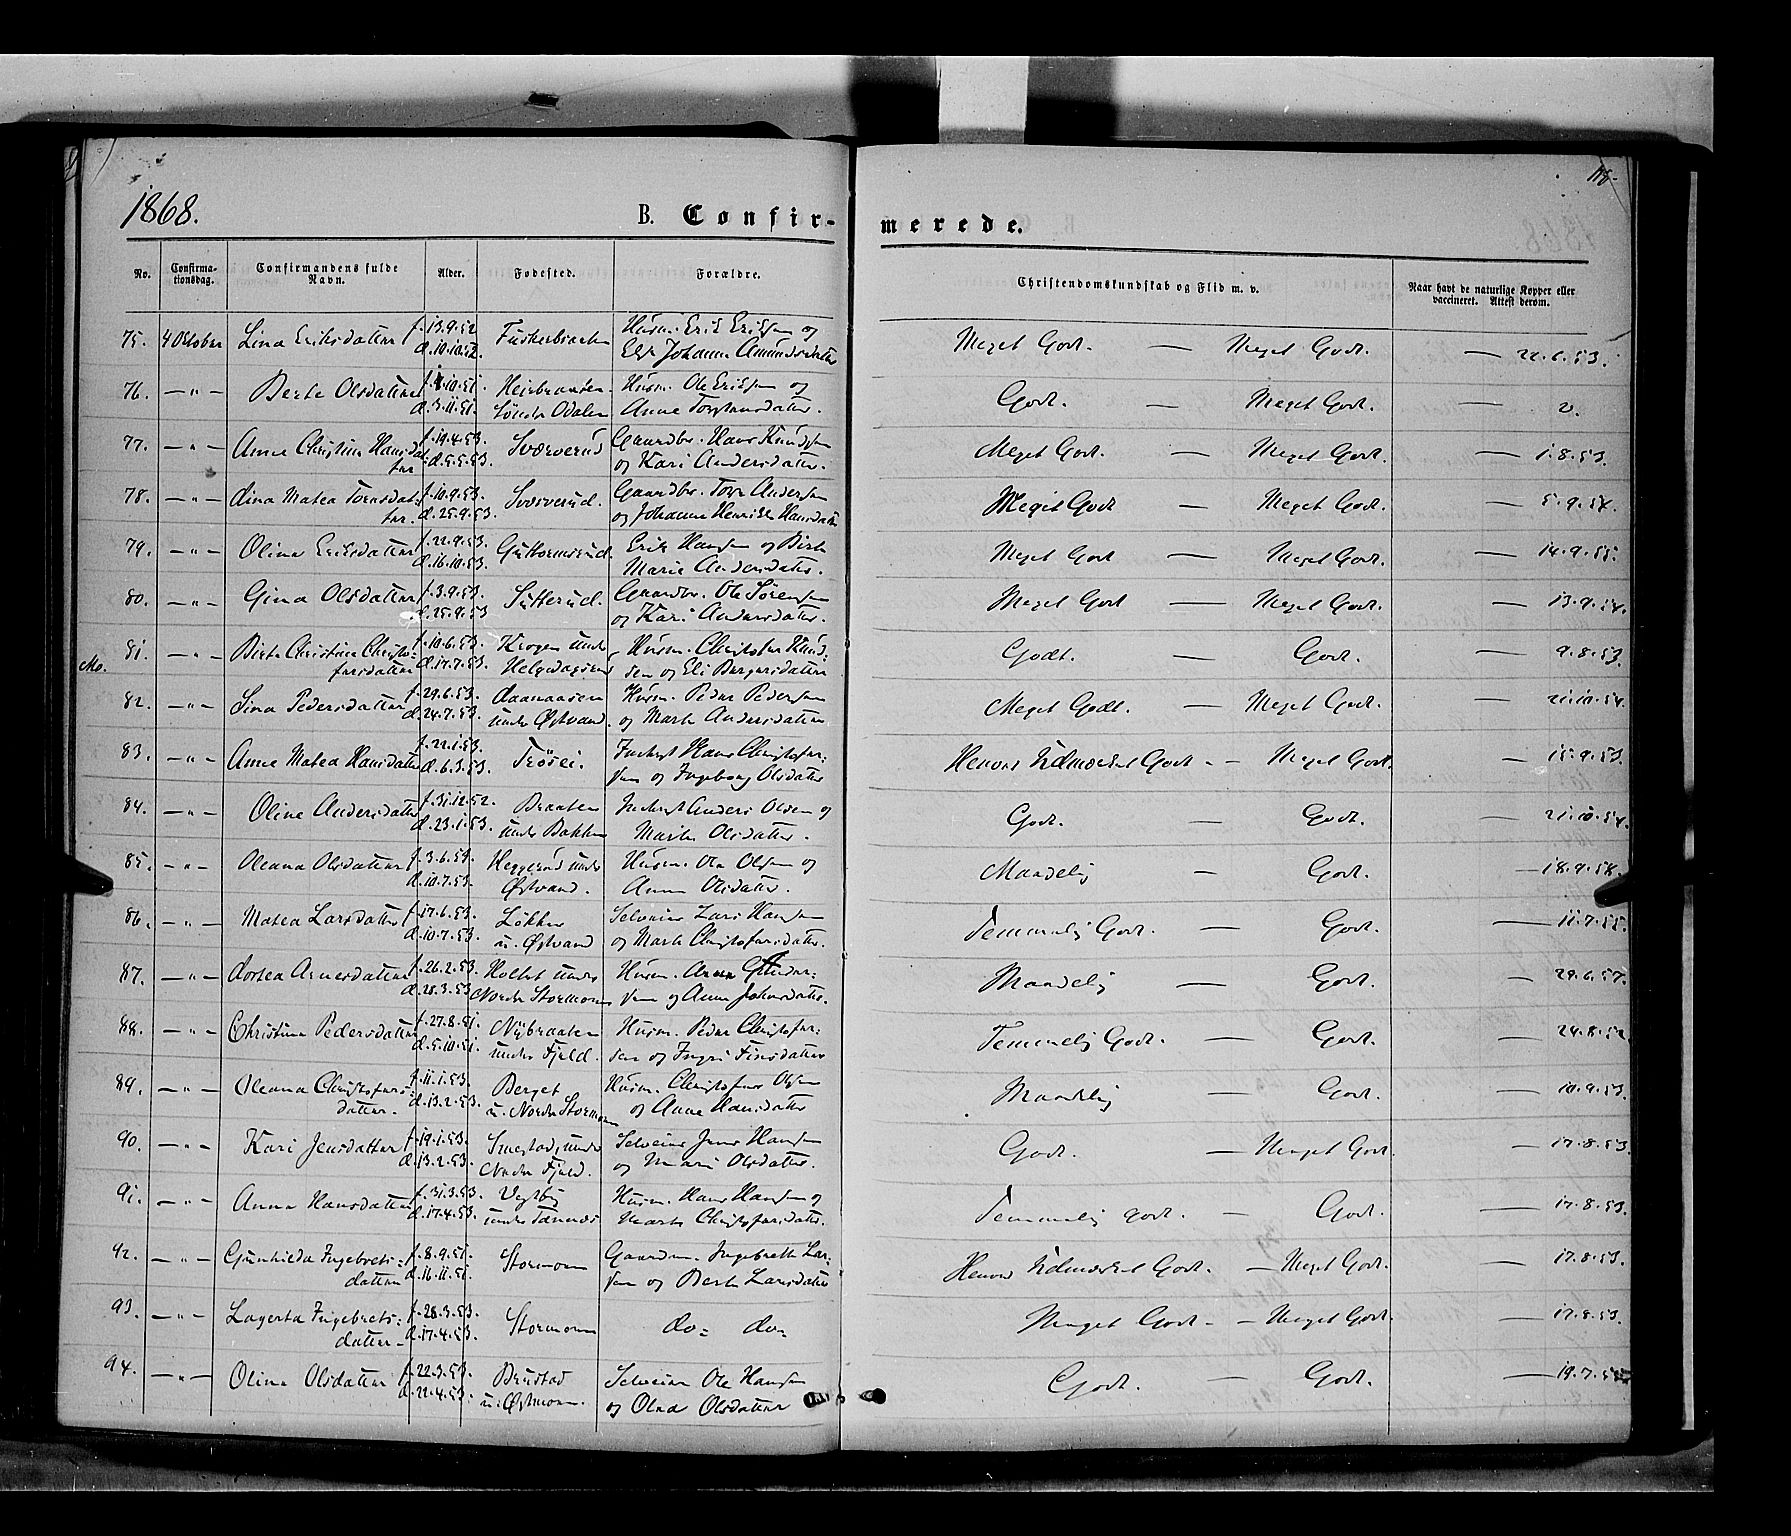 1868.
B. Confir-
merede.
No.
Confirma-
tionsdag.
Confirmandens fulde
Navn.
Alder.
Fødested.
Forældre.
Christendomskundskab og Flid m. v.
Naar havt de naturlige Kopper eller
vaccineret. Attest derom.
75. 4 October Lina Eriksdatter f. 13.9.52 Husm. Erik Eriksen og Meget Godt. — Meget Godt. — 22.6.53.
d. 10.10.52. Johanne Amundsdatter
76. — " — Berte Olsdatter 10.51. Husm. Ole Eriksen og Godt. — Meget Godt. — 2.
d. 3.11.51. Søndre Odalen Anne
77. — " — Anne Christine Hansdat- f. 19.4.53. Sværverud Gaardbr. Hans Knudsen Meget Godt. — Meget Godt. — 1.8.53.
ter d. 5.5.53. og Kari Andersdatter.
78. — " — Lina Matea Toresdat- f. 10.9.53. Sværverud. Gaardbr. Tore Andersen Meget Godt — Meget Godt. — 5.9.54.
ter. d. 25.9.53. og Johanne Henrikke Hansdatter
79. — " — Oline Eriksdatter f. 22.9.53. Guttormsrud. Erik Hansen og Berte Meget Godt — Meget Godt. — 14.9.55.
d. 16.10.53. Marie Andersdatter.
80. — " — Gina Olsdatter f. 3.9.53. Sætterud. Gaardbr. Ole Sørensen Meget Godt — Meget Godt. — 13.9.54.
d. 25.9.53 og Kari Andersdatter.
Mo.
81. — " — Berte Christine Christo- f. 10.6.53. Krogen under Husm. Christofer Knud- Godt. — Godt. — 9.8.53.
fersdatter d. 17.7.53. sen og Eli Børgersdatter
82. — " — Lina Pedersdatter f. 29.6.53. Husm. Peder Pedersen Meget Godt. — Meget Godt. — 21.10.54.
d. 24.7.53. under Østvand. og Marte Andersdatter
83. — " — Anne Matea Hansdatter f. 22.1.53. Trøsei. Inderst Hans Christofer- Henved Udmærket Godt - — Meget Godt. — 15.9.53.
d. 6.3.53. sen og Ingeborg Olsdatter
84. — " — Oline Andersdatter f. 31.12.52. Braaten Inderst Anders Olsen og Godt. — Godt. — 21.10.54.
d. 23.1.53. under Bakken Marte Olsdatter.
85. — " — Oleana Olsdatter f. 3.6.53. Heggerud under Husm. Ole Olsen og Maadelig — Godt. — 18.9.58.
d. 10.7.53. Østvand. Anne Olsdatter.
86. — " — Matea Larsdatter f. 17.6.53. Løkken Selveier Lars Hansen Temmelig Godt. — Godt. — 11.7.55.
d. 10.7.53. u. Østvand og Marte Christofersdatter.
87. — " — Dortea Arnesdatter f. 26.2.53. Holtet under Husm. Arne Maadelig — Godt. — 29.6.57.
d. 28.3.53 Nordre Stormoen sen og Anne Johnsdatter.
88. — " — Christine Pedersdatter f. 27.8.51. Nybraaten Husm. Peder Christofer- Temmelig Godt. — Godt. — 24.8.52
d. 5.10.51. under Fjeld. sen og Ingri Finsdatter
89. — " — Oleana Christofers- f. 11.1.53. Berget Husm. Christofer Olsen Maadelig — Godt. — 10.9.53.
datter. d. 13.2.53. u. Nordre Stormoen og Anne Hansdatter
90. — " — Kari Jensdatter f. 19.1.53. Smestad, under Selveier Jens Hansen Godt. — Meget Godt. — 17.8.53.
d. 13.2.53. Nordre Fjeld. og Mari Olsdatter.
91. — " — Anne Hansdatter f. 31.3.53. Vestby Husm. Hans Hansen og Temmelig godt. - Godt. — 17.8.53.
d. 17.4.53. under Marte Christofersdatter.
92. — " — Gunhilda Ingebrets- f. 8.9.51. Stormoen Gaardm. Ingebrett Lar- Henved Udmærket Godt. — Meget Godt. — 17.8.53.
datter d. 16.11.51. sen og Berte Larsdatter
93. — " — Lagerta Ingebrets- f. 28.3.53. Stormoen do= do= Meget Godt. - — Meget Godt. — 17.8.53.
datter d. 17.4.53.
94. — " — Oline Olsdatter f. 22.3.53. Brustad Selveier Ole Hansen Godt. — Godt. — 19.7.55
d. 22.4.53. u. Østmoen. og Olea Olsdatter